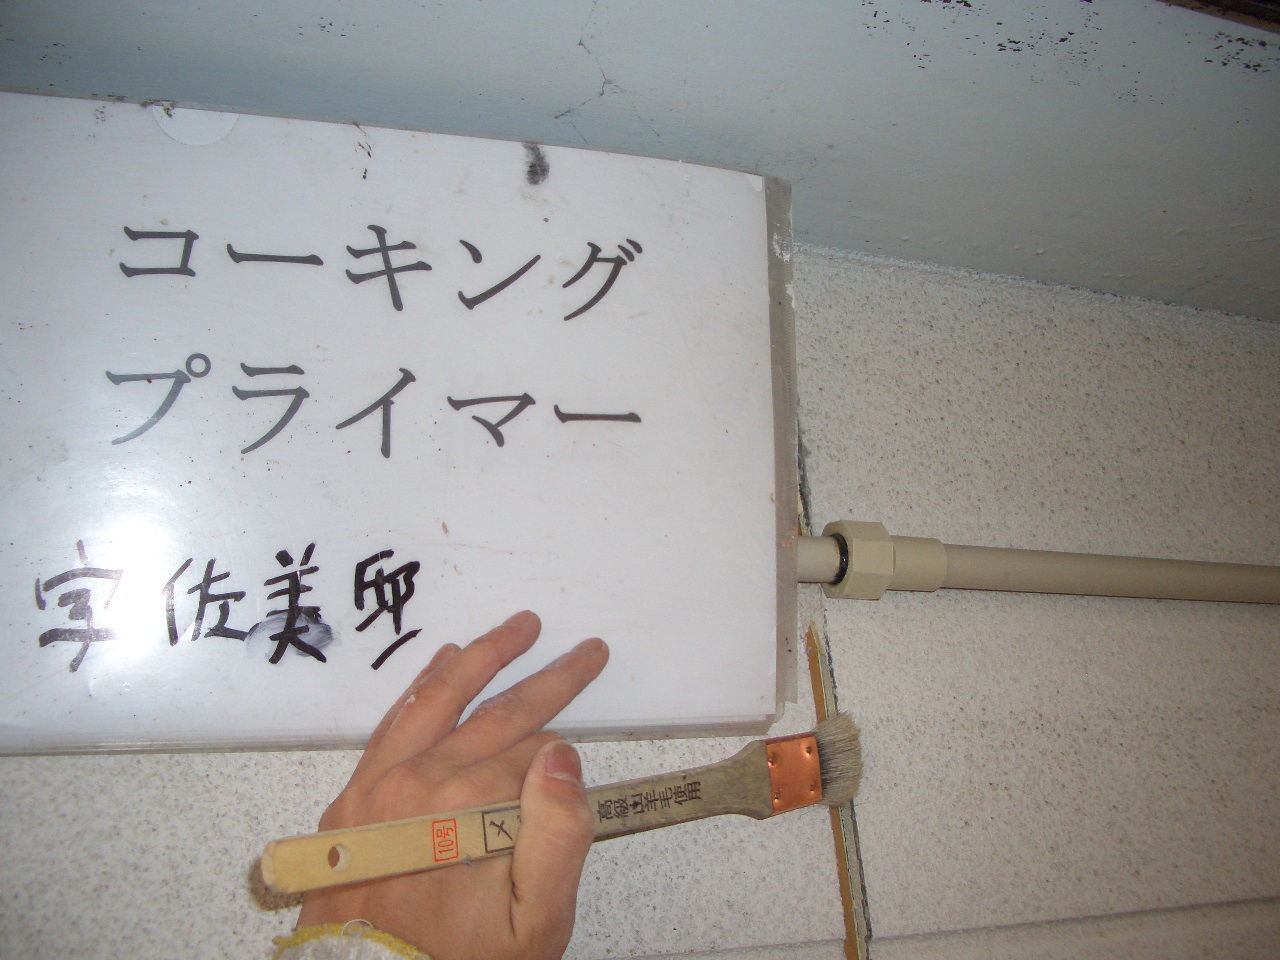 コーキング
プライマー
宇佐美邸
10号
メ
高級山羊毛使用